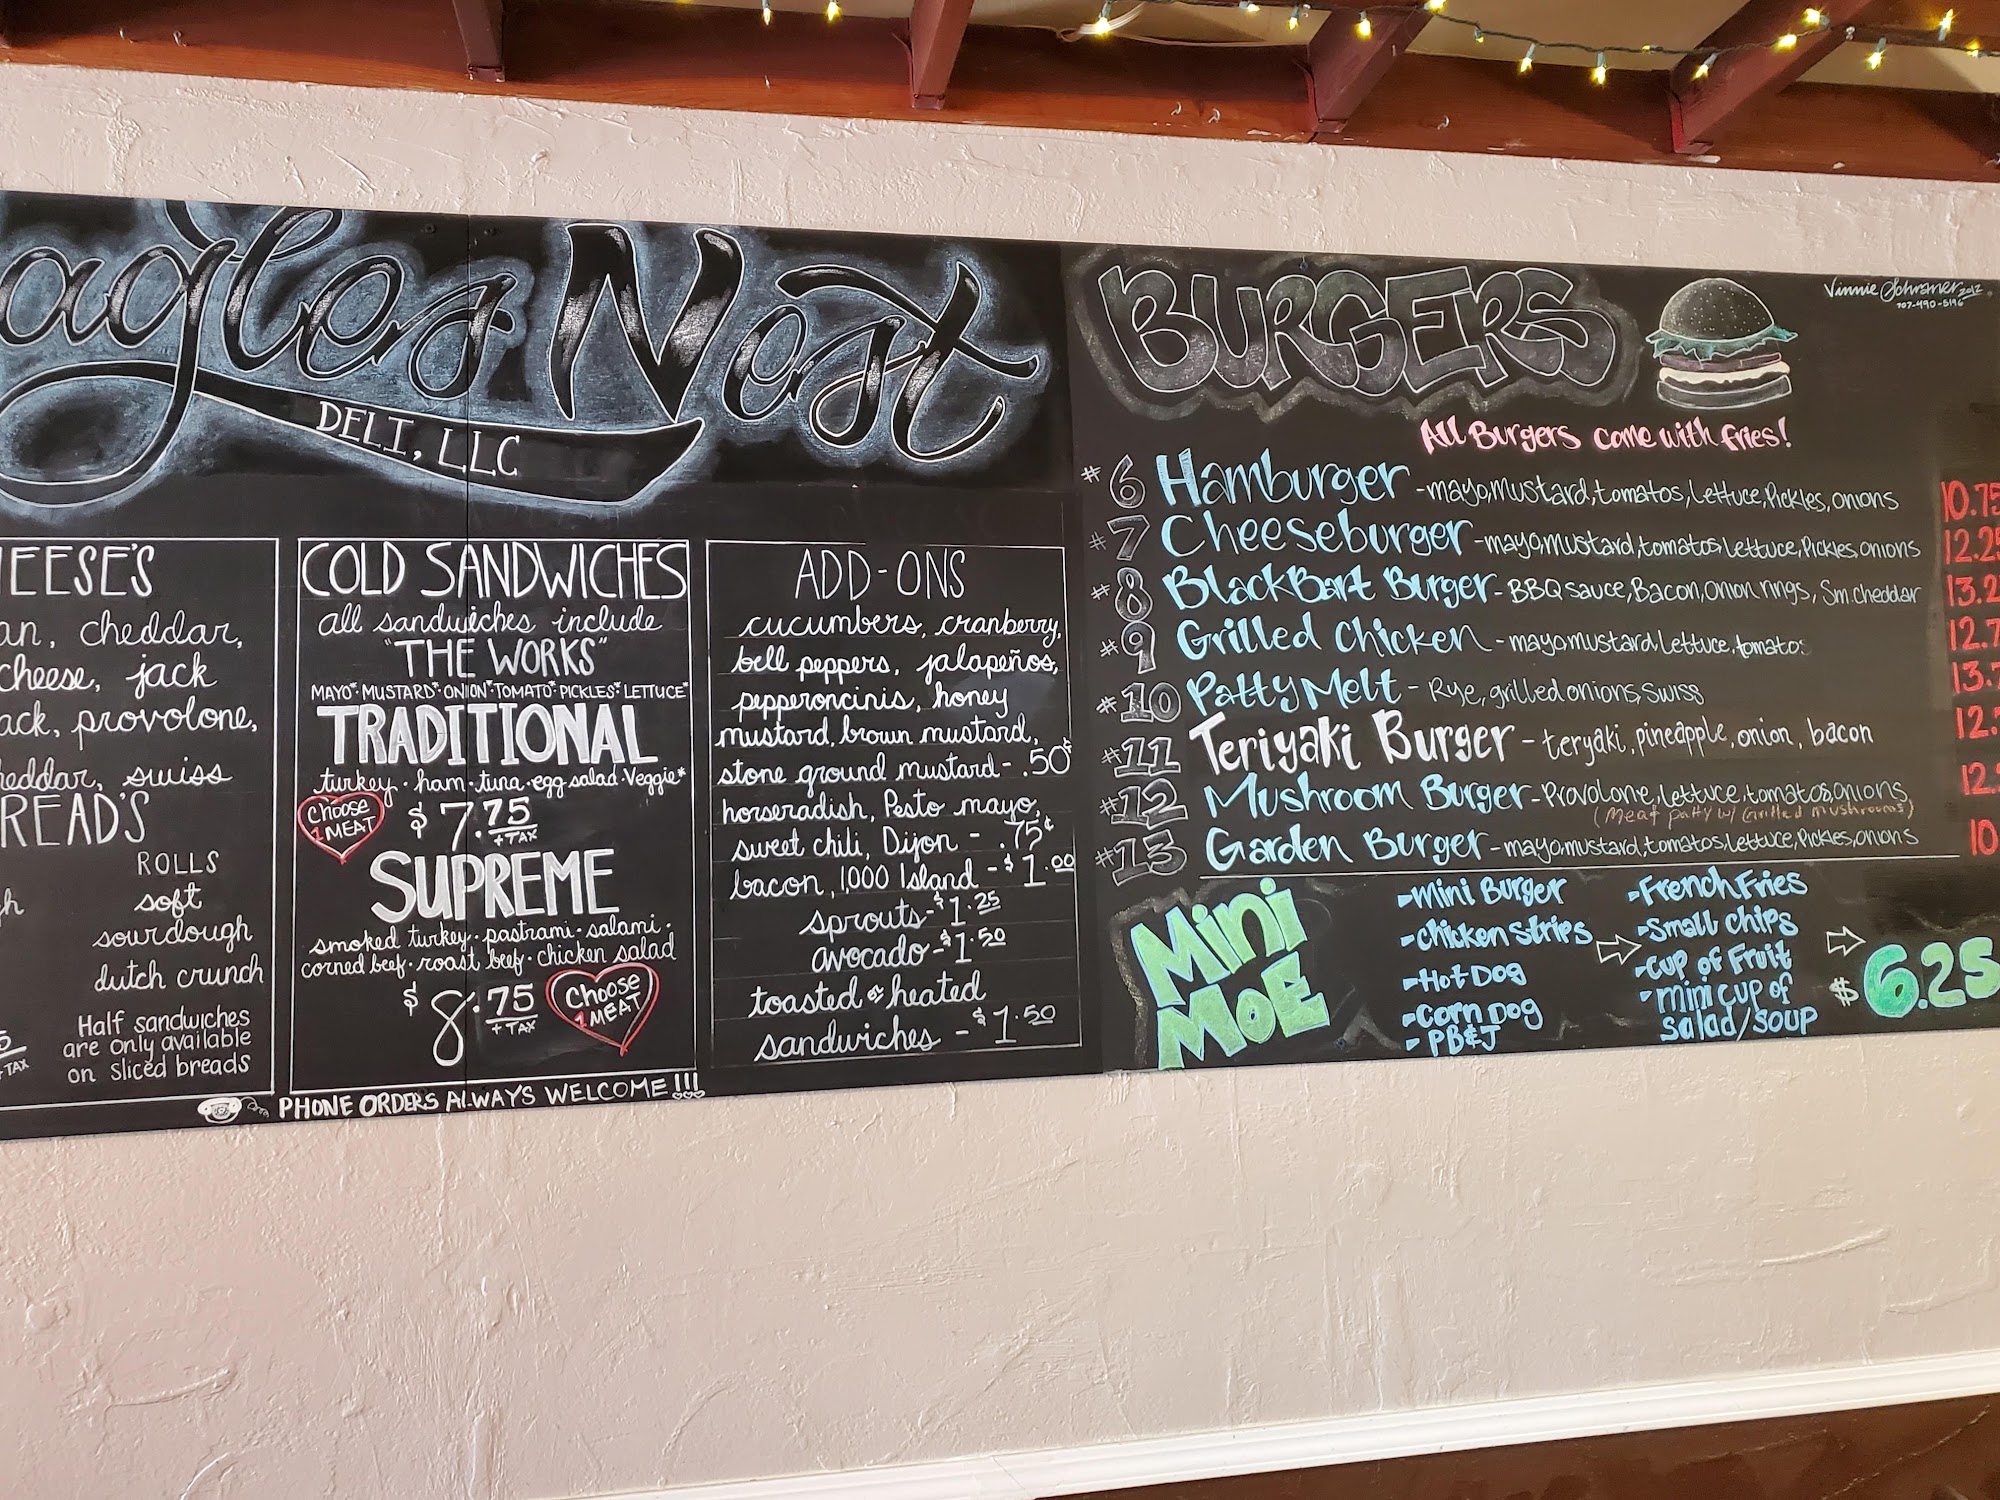 agles Nest
DELI, LLC
EESE'S
an, cheddar,
cheese, jack
ack, provolone,
heddar, swiss
READ'S
ROLLS
soft
sourdough
dutch crunch
Half sandwiches
are only available
on sliced breads
+ TAX
COLD SANDWICHES
all sandwiches include
"THE WORKS"
MAYO* MUSTARD* ONION* TOMATO* PICKLES* LETTUCE*
TRADITIONAL
turkey · ham · tuna · egg salad · Veggie*
Choose
1 MEAT
$7.75
+ TAX
SUPREME
smoked turkey · pastrami · salami ·
corned beef · roast beef · chicken salad
$8.75
+ TAX
Choose
1 MEAT
PHONE ORDERS ALWAYS WELCOME!!!
ADD-ONS
cucumbers, cranberry,
bell peppers, jalapeños,
pepperoncinis, honey
mustard, brown mustard,
stone ground mustard - .50¢
horseradish, Pesto mayo,
sweet chili, Dijon - .75¢
bacon, 1,000 Island - $1.00
sprouts - $1.25
avocado - $1.50
toasted or heated
sandwiches - $1.50
BURGERS
Vinnie
2012
707-490-5196
All Burgers come with fries!
#6 Hamburger - mayo, mustard, tomatos, lettuce, Pickles, onions 10.75
#7 Cheeseburger - mayo, mustard, tomatos, lettuce, Pickles, onions 12.25
#8 BlackBart Burger - BBQ sauce, Bacon, onion rings, Sm cheddar 13.2
#9 Grilled Chicken - mayo, mustard, lettuce, tomatos 12.7
#10 Patty Melt - Rye, grilled onions, Swiss 13.7
#11 Teriyaki Burger - teryaki, pineapple, onion, bacon 12.
#12 Mushroom Burger - Provolone, lettuce, tomatos, onions 12.
(Meat patty w/ Grilled mushrooms)
#13 Garden Burger - mayo, mustard, tomatos, lettuce, Pickles, onions 10
Mini
MOE
- Mini Burger
- Chicken Strips
- Hot Dog
- Corn Dog
- PB&J
- French Fries
- Small chips
- Cup of Fruit
- mini cup of
salad/soup
$6.25